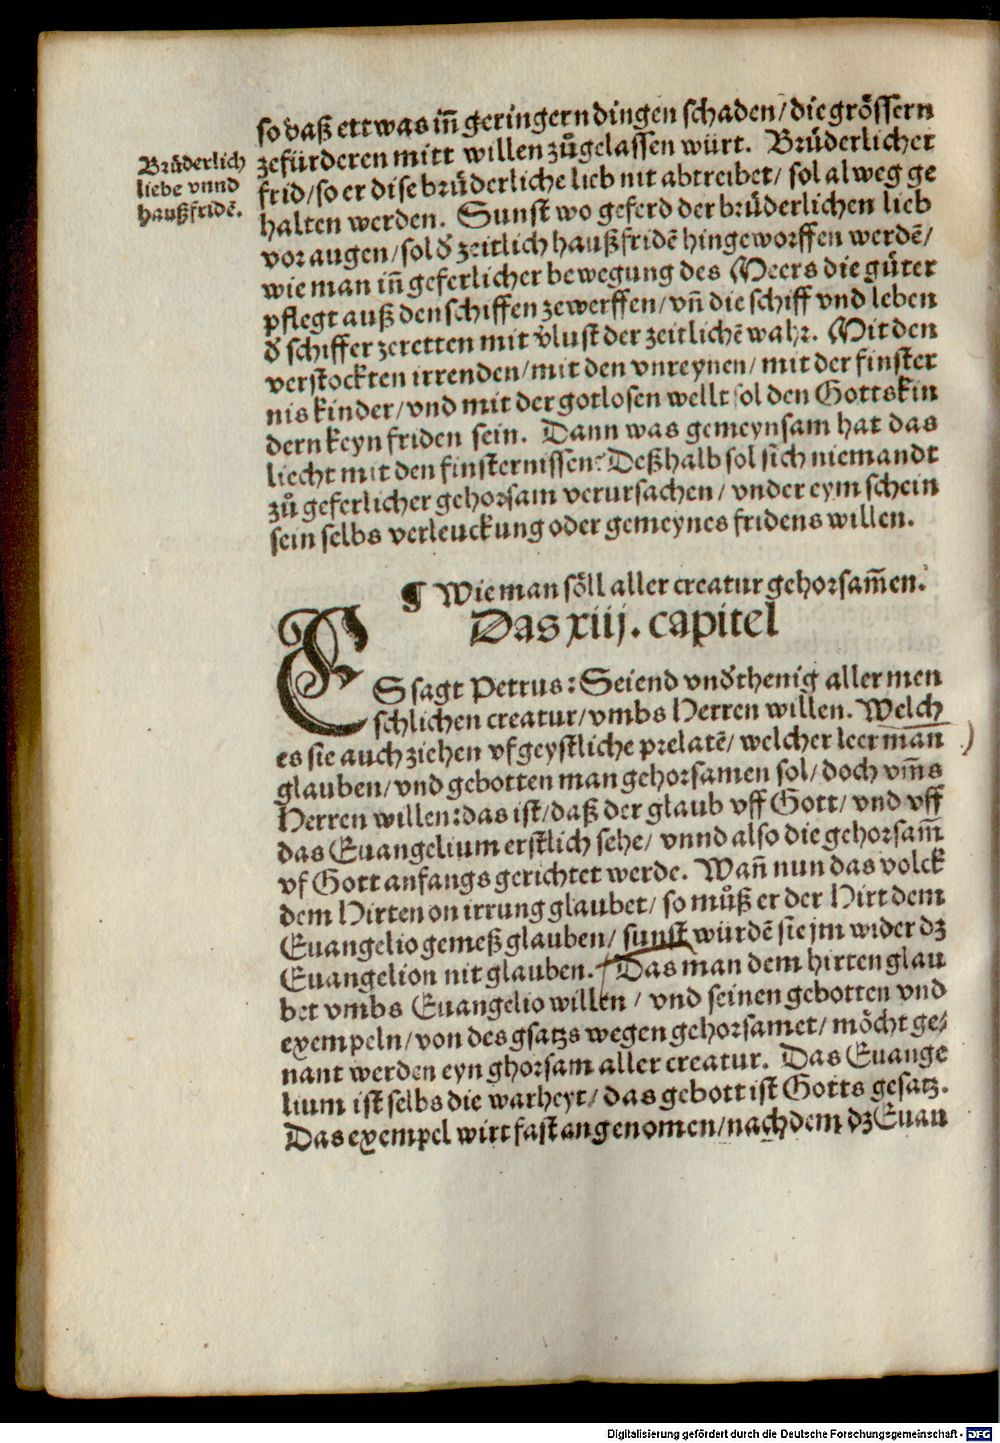 so daß ettwas iñ geringern dingen schaden / die grössern
zefürderen mitt willen zůgelassen würt. Brůderlicher
frid / so er dise brůderliche lieb nit abtreibet / sol alweg ge
halten werden. Sunst wo geferd der brůderlichen lieb
vor augen / sol d' zeitlich haußfridē hingeworffen werdē /
wie man iñ geferlicher bewegung des Meers die gůter
pflegt auß den schiffen zewerffen / vñ die schiff vnd leben
d' schiffer zeretten mit v'lust der zeitlichē wahr. Mit den
verstockten irrenden / mit den vnreynen / mit der finster
nis kinder / vnd mit der gotlosen wellt sol den Gottskin
dern keyn friden sein. Dann was gemeynsam hat das
liecht mit den finsternissen? Deßhalb sol sich niemandt
zů geferlicher gehorsam verursachen / vnder eym schein
sein selbs verleuckung oder gemeynes fridens willen.
Brůderlich
liebe vnnd
haußfridē.
¶ Wie man söll aller creatur gehorsam̄en.
Das xiij. capitel
ES sagt Petrus: Seiend vnd'thenig aller men
schlichen creatur / vmbs Herren willen. Welch
es sie auch ziehen vf geystliche prelatē / welcher leer man
glauben / vnd gebotten man gehorsamen sol / doch vm̄s
Herren willen: das ist / daß der glaub vff Gott / vnd vff
das Euangelium erstlich sehe / vnnd also die gehorsam̄
vf Gott anfangs gerichtet werde. Wañ nun das volck
dem Hirten on irrung glaubet / so můß er der Hirt dem
Euangelio gemeß glauben / sunst würdē sie jm wider dz
Euangelion nit glauben. Das man dem hirten glau
bet vmbs Euangelio willen / vnd seinen gebotten vnd
exempeln / von des gsatzs wegen gehorsamet / möcht ge⸗
nant werden eyn ghorsam aller creatur. Das Euange
lium ist selbs die warheyt / das gebott ist Gotts gesatz.
Das exempel wirt fast angenomen / nachdem dz Euan
Digitalisierung gefördert durch die Deutsche Forschungsgemeinschaft - DFG